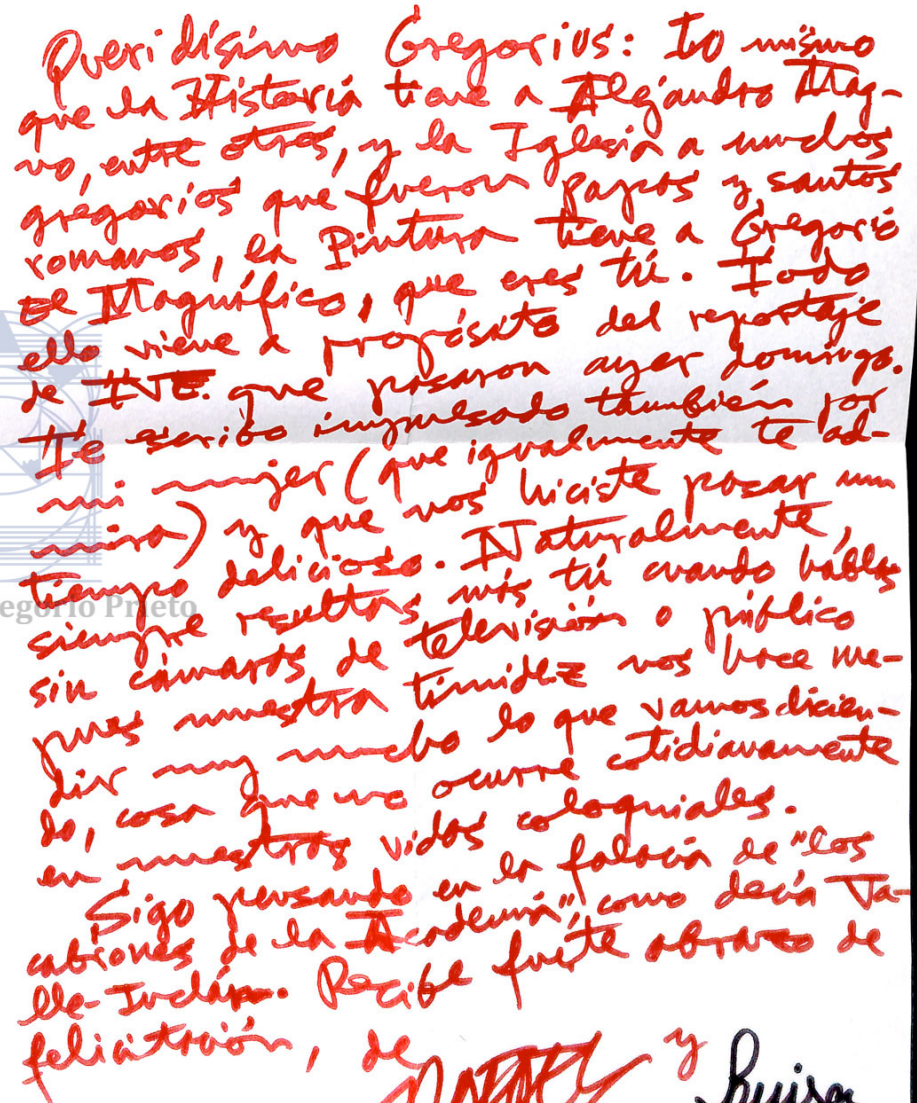 Queridísimo Gregorius: Lo mismo
que la Historia tiene a Alejandro Mag-
no, entre otros, y la Iglesia a muchos
gregorios que fueron papas y santos
romanos, la Pintura tiene a Gregorio
el Magnífico, que eres tú. Todo
ello viene a propósito del reportaje
de TVE. que pasaron ayer domingo.
Te escribo impulsado también por
mi mujer (que igualmente te ad-
mira) y que nos hiciste pasar un
tiempo delicioso. Naturalmente,
siempre resultas más tú cuando hablas
sin cámaras de televisión o público
pues nuestra timidez nos hace me-
dir muy mucho lo que vamos dicien-
do, cosa que no ocurre cotidianamente
en nuestras vidas coloquiales.
Sigo pensando en la falacia de "los
cabrones de la Academia", como decía Va-
lle-Inclán. Recibe fuerte abrazo de
felicitación, de y Luisa
egorio Prieto